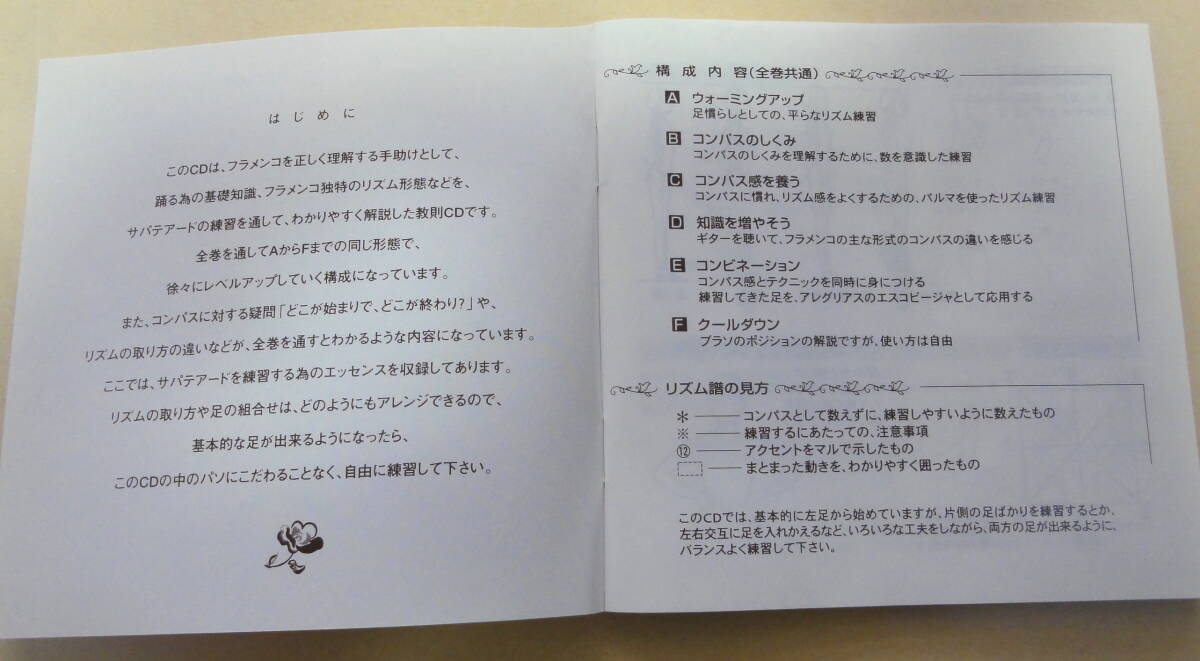 はじめに
このCDは、フラメンコを正しく理解する手助けとして、
踊る為の基礎知識、フラメンコ独特のリズム形態などを、
サパテアードの練習を通して、わかりやすく解説した教則CDです。
全巻を通してAからFまでの同じ形態で、
徐々にレベルアップしていく構成になっています。
また、コンパスに対する疑問「どこが始まりで、どこが終わり?」や、
リズムの取り方の違いなどが、全巻を通すとわかるような内容になっています。
ここでは、サパテアードを練習する為のエッセンスを収録してあります。
リズムの取り方や足の組合せは、どのようにもアレンジできるので、
基本的な足が出来るようになったら、
このCDの中のパソにこだわることなく、自由に練習して下さい。
構成内容(全巻共通)
A ウォーミングアップ
足慣らしとしての、平らなリズム練習
B コンパスのしくみ
コンパスのしくみを理解するために、数を意識した練習
C コンパス感を養う
コンパスに慣れ、リズム感をよくするための、パルマを使ったリズム練習
D 知識を増やそう
ギターを聴いて、フラメンコの主な形式のコンパスの違いを感じる
E コンビネーション
コンパス感とテクニックを同時に身につける
練習してきた足を、アレグリアスのエスコビージャとして応用する
F クールダウン
ブラソのポジションの解説ですが、使い方は自由
リズム譜の見方
＊ ――― コンパスとして数えずに、練習しやすいように数えたもの
※ ――― 練習するにあたっての、注意事項
⑫ ――― アクセントをマルで示したもの
――― まとまった動きを、わかりやすく囲ったもの
このCDでは、基本的に左足から始めていますが、片側の足ばかりを練習するとか、
左右交互に足を入れかえるなど、いろいろな工夫をしながら、両方の足が出来るように、
バランスよく練習して下さい。